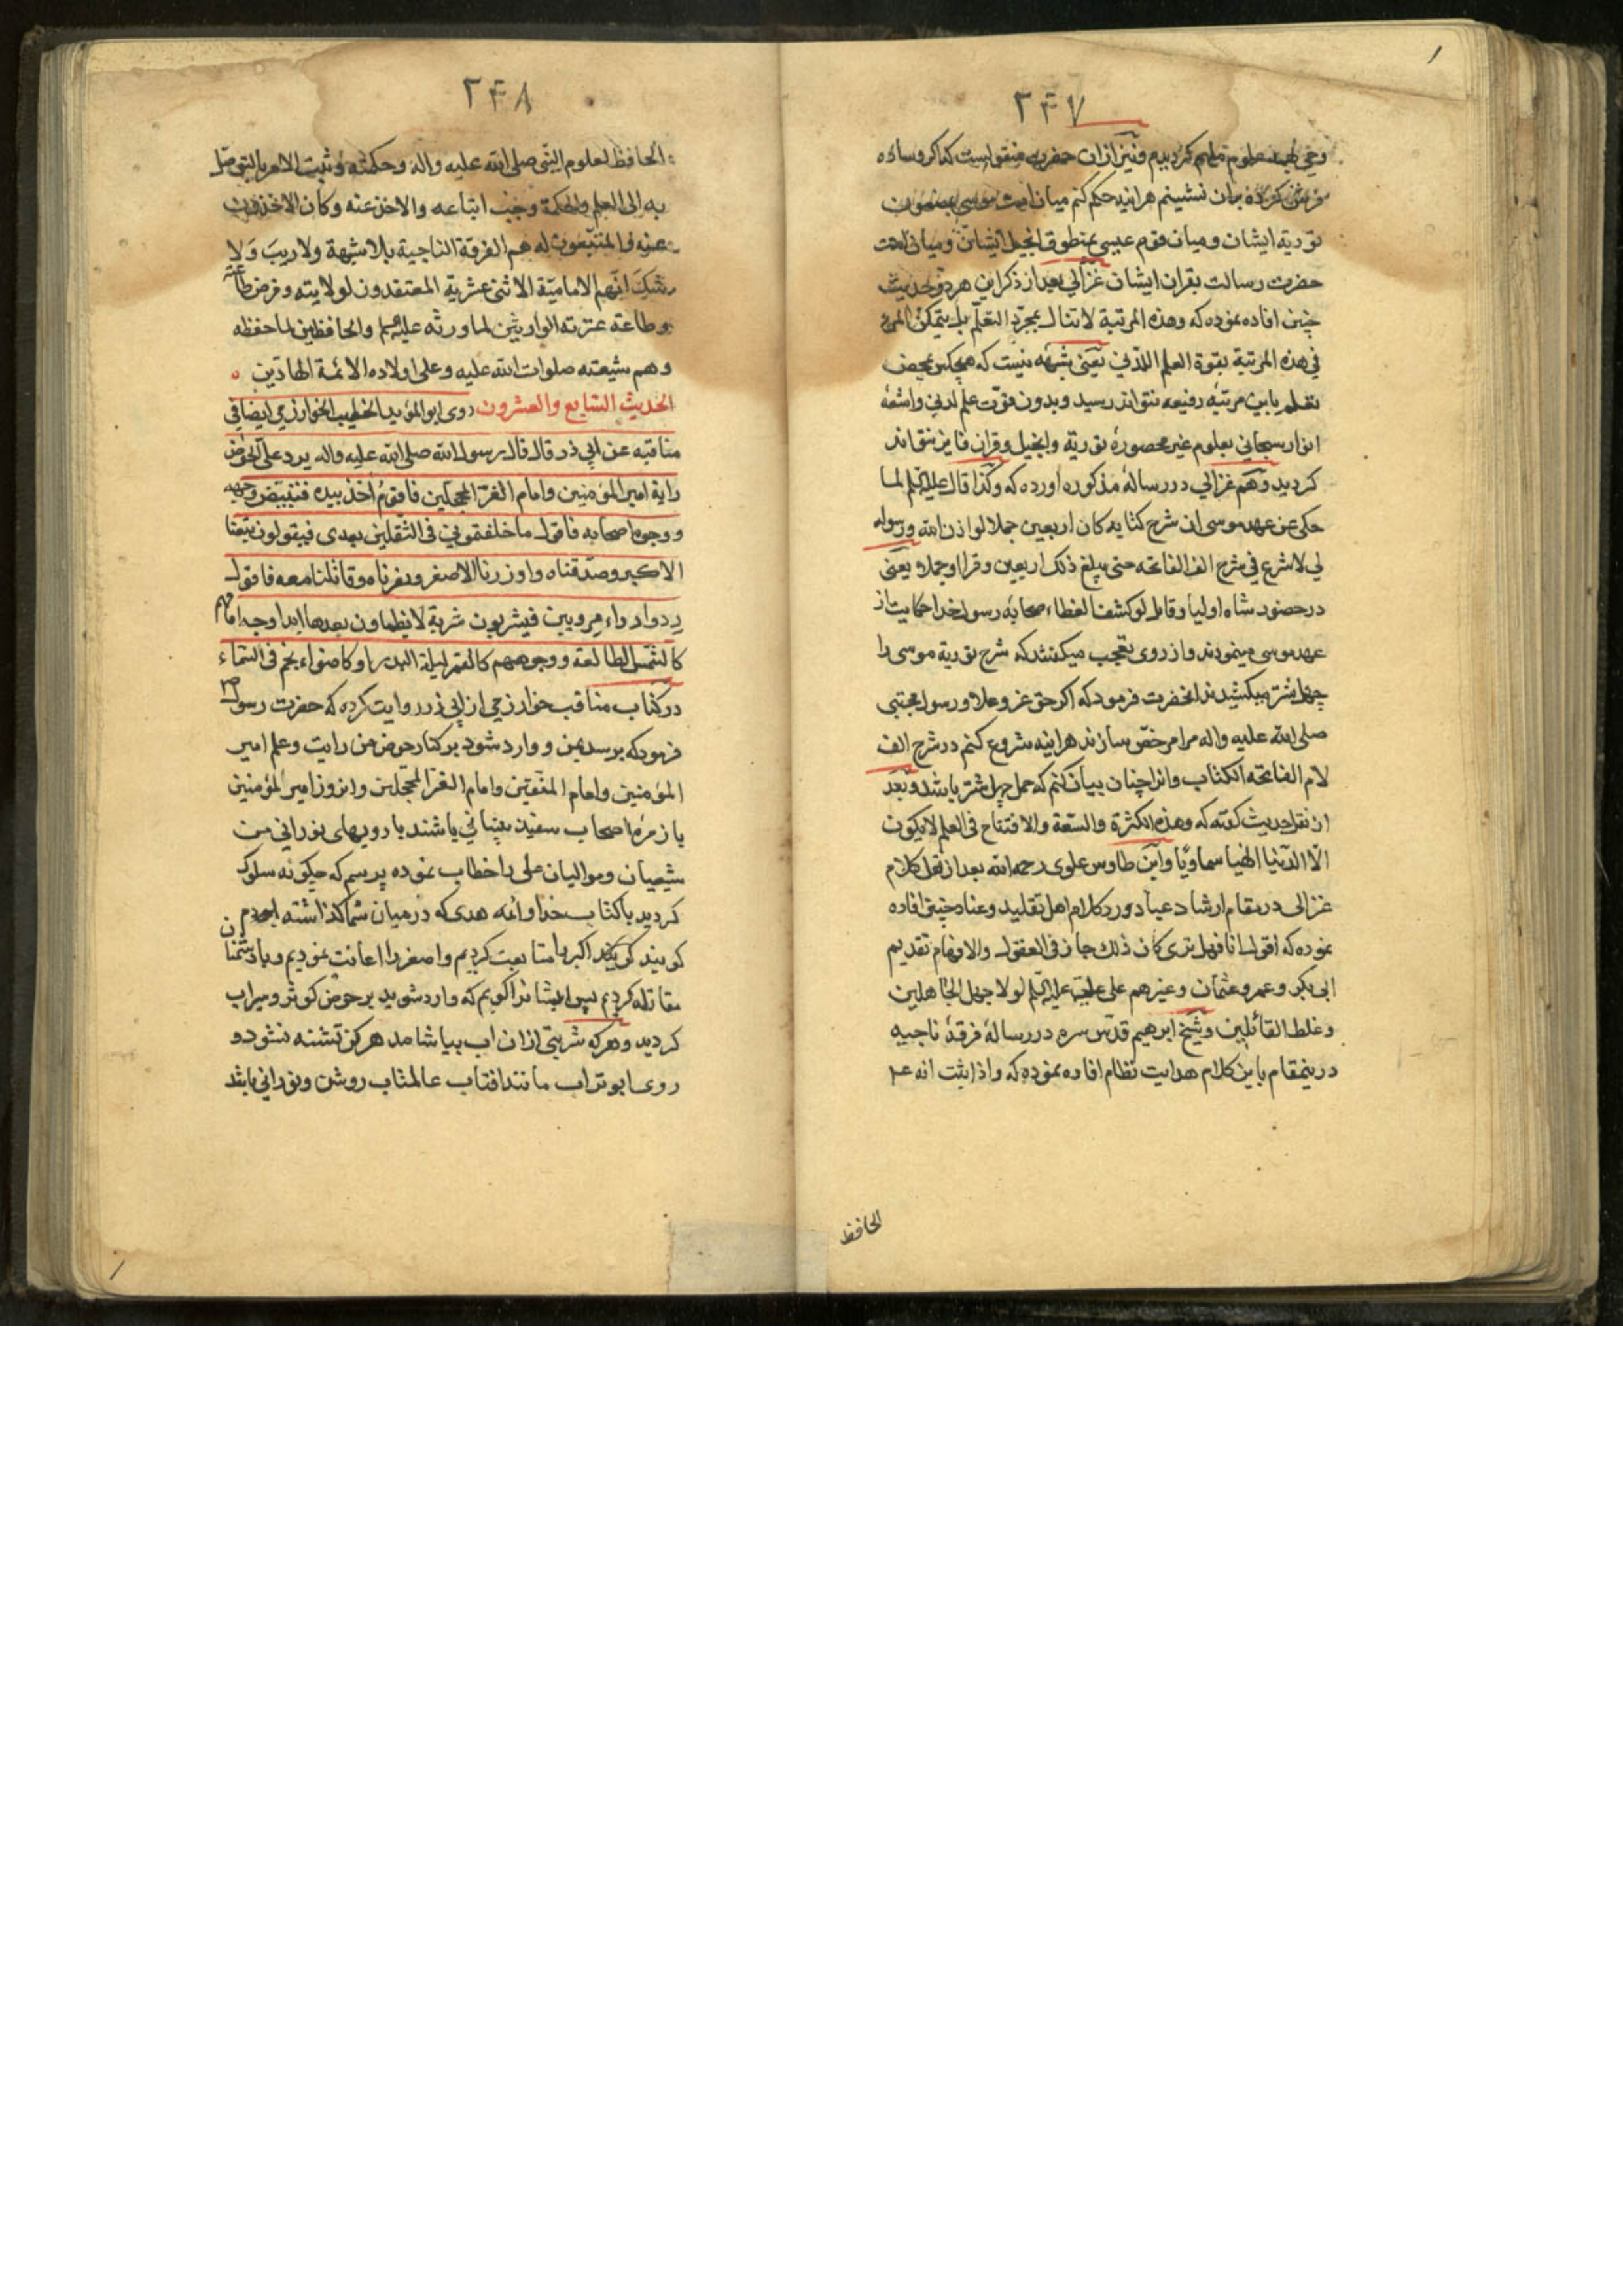 ۲۴۷
وحی بهمه علوم ملهم کردیم ونیز ازان حضرت منقولست که اکر وساده
فرش کرده بران نشینم هراینه حکم کنم میان امت موسی بمضمون
توریة ایشان ومیان قوم عیسی بمنطوق انجیل ایشان ومیان امت
حضرت رسالت بقران ایشان غزالی بعد از ذکر این هر دو حدیث
چنین افاده نموده که وهذه المرتبة لا تنال بمجرد التعلم بل یتمکن المرء
فی هذه المرتبة بقوة العلم اللدنی یعنی شبهه نیست که هیچکس بمحض
تعلم باین مرتبهٔ رفیعه نتواند رسید وبدون قوت علم لدنی واشعهٔ
انوار سبحانی بعلوم غیر محصورهٔ توریة وانجیل وقران فایز نتواند
کردید وهم غزالی در رسالهٔ مذکوره آورده که وکذا قال علیه السلم لما
حکی عن عهد موسی ان شرح کتابه کان اربعین جملا لو اذن الله ورسوله
لی لاشرع فی شرح الف الفاتحه حتی یبلغ ذلک اربعین وقرا او جملا یعنی
در حضور شاه اولیا وقایل لو کشف الغطاء صحابهٔ رسول خدا حکایت از
عهد موسی مینمودند واز روی تعجب میکفتند که شرح توریة موسی را
چهل شتر میکشیدند انحضرت فرمود که اکر حق عز وعلا ورسول مجتبی
صلی الله علیه واله مرا مرخص سازند هراینه شروع کنم در شرح الف
لام الفاتحه الکتاب وانرا چنان بیان کنم که حمل چهل شتر باشد وبعد
از نقل حدیث کفته که وهذه الکثرة والسعة والافتتاح فی العلم لا یکون
الا لدنیا الهیا سماویا وابن طاوس علوی رحمه الله بعد از نقل کلام
غزالی در مقام ارشاد عباد ورد کلام اهل تقلید وعناد چنین افاده
نموده که اقول انا فهل تری کان ذلک جاز فی العقول والاوهام تقدیم
ابی بکر وعمر وعثمان وغیرهم علی علی علیه السلم لولا جهل الجاهلین
وغلط القائلین وشیخ ابرهیم قدس سره در رسالهٔ فرقهٔ ناجیه
درینمقام باین کلام هدایت نظام افاده نموده که واذا ثبت انه ع
الحافظ
۲۴۸
الحافظ لعلوم النبی صلی الله علیه واله وحکمته وثبت الامر بالتوصل
به الی العلم والحکمة وجب اتباعه والاخذ عنه وکان الاخذون
عنه والمتبعون له هم الفرقة الناجیة بلا شبهة ولا ریب ولا
شک انهم الامامیة الاثنی عشریة المعتقدون لولایته وفرض طاعته
وطاعة عترته الوارثین لما ورثه علیهم والحافظین لما حفظه
وهم شیعته صلوات الله علیه وعلی اولاده الائمة الهادین
الحدیث السابع والعشرون روی ابو المؤید الخطیب الخوارزمی ایضا فی
مناقبه عن ابی ذر قال قال رسول الله صلی الله علیه واله یرد علی الحوض
رایة امیر المؤمنین وامام الغر المحجلین فاقوم اخذ بیده فیبیض وجهه
ووجوه اصحابه فاقول ما خلفتمونی فی الثقلین بعدی فیقولون تبعنا
الاکبر وصدقناه ووازرنا الاصغر ونصرناه وقاتلنا معه فاقول
ردوا رواء مرویین فیشربون شربة لا یظماون بعدها ابدا وجه امامهم
کالشمس الطالعة ووجوههم کالقمر لیلة البدر او کاضواء نجم فی السماء
در کتاب مناقب خوارزمی از ابی ذر روایت کرده که حضرت رسول ص
فرمود که برسد بمن ووارد شود بر کنار حوض من رایت وعلم امیر
المؤمنین وامام المتقین وامام الغر المحجلین وانروز امیر المؤمنین
با زمرهٔ اصحاب سفید پیشانی باشند با رویهای نورانی من
شیعیان وموالیان علی را خطاب نموده پرسم که چکونه سلوک
کردید با کتاب خدا وائمه هدی که در میان شما کذاشته بودم
کویند کویند اکبر را متابعت کردیم واصغر را اعانت نمودیم وبا دشمنان
مقاتله کردیم پس ایشانرا کویم که وارد شوید بر حوض کوثر وسیراب
کردید وهرکه شربتی ازان اب بیاشامد هرکز تشنه نشود و
روی ابو تراب مانند افتاب عالمتاب روشن ونورانی باشد